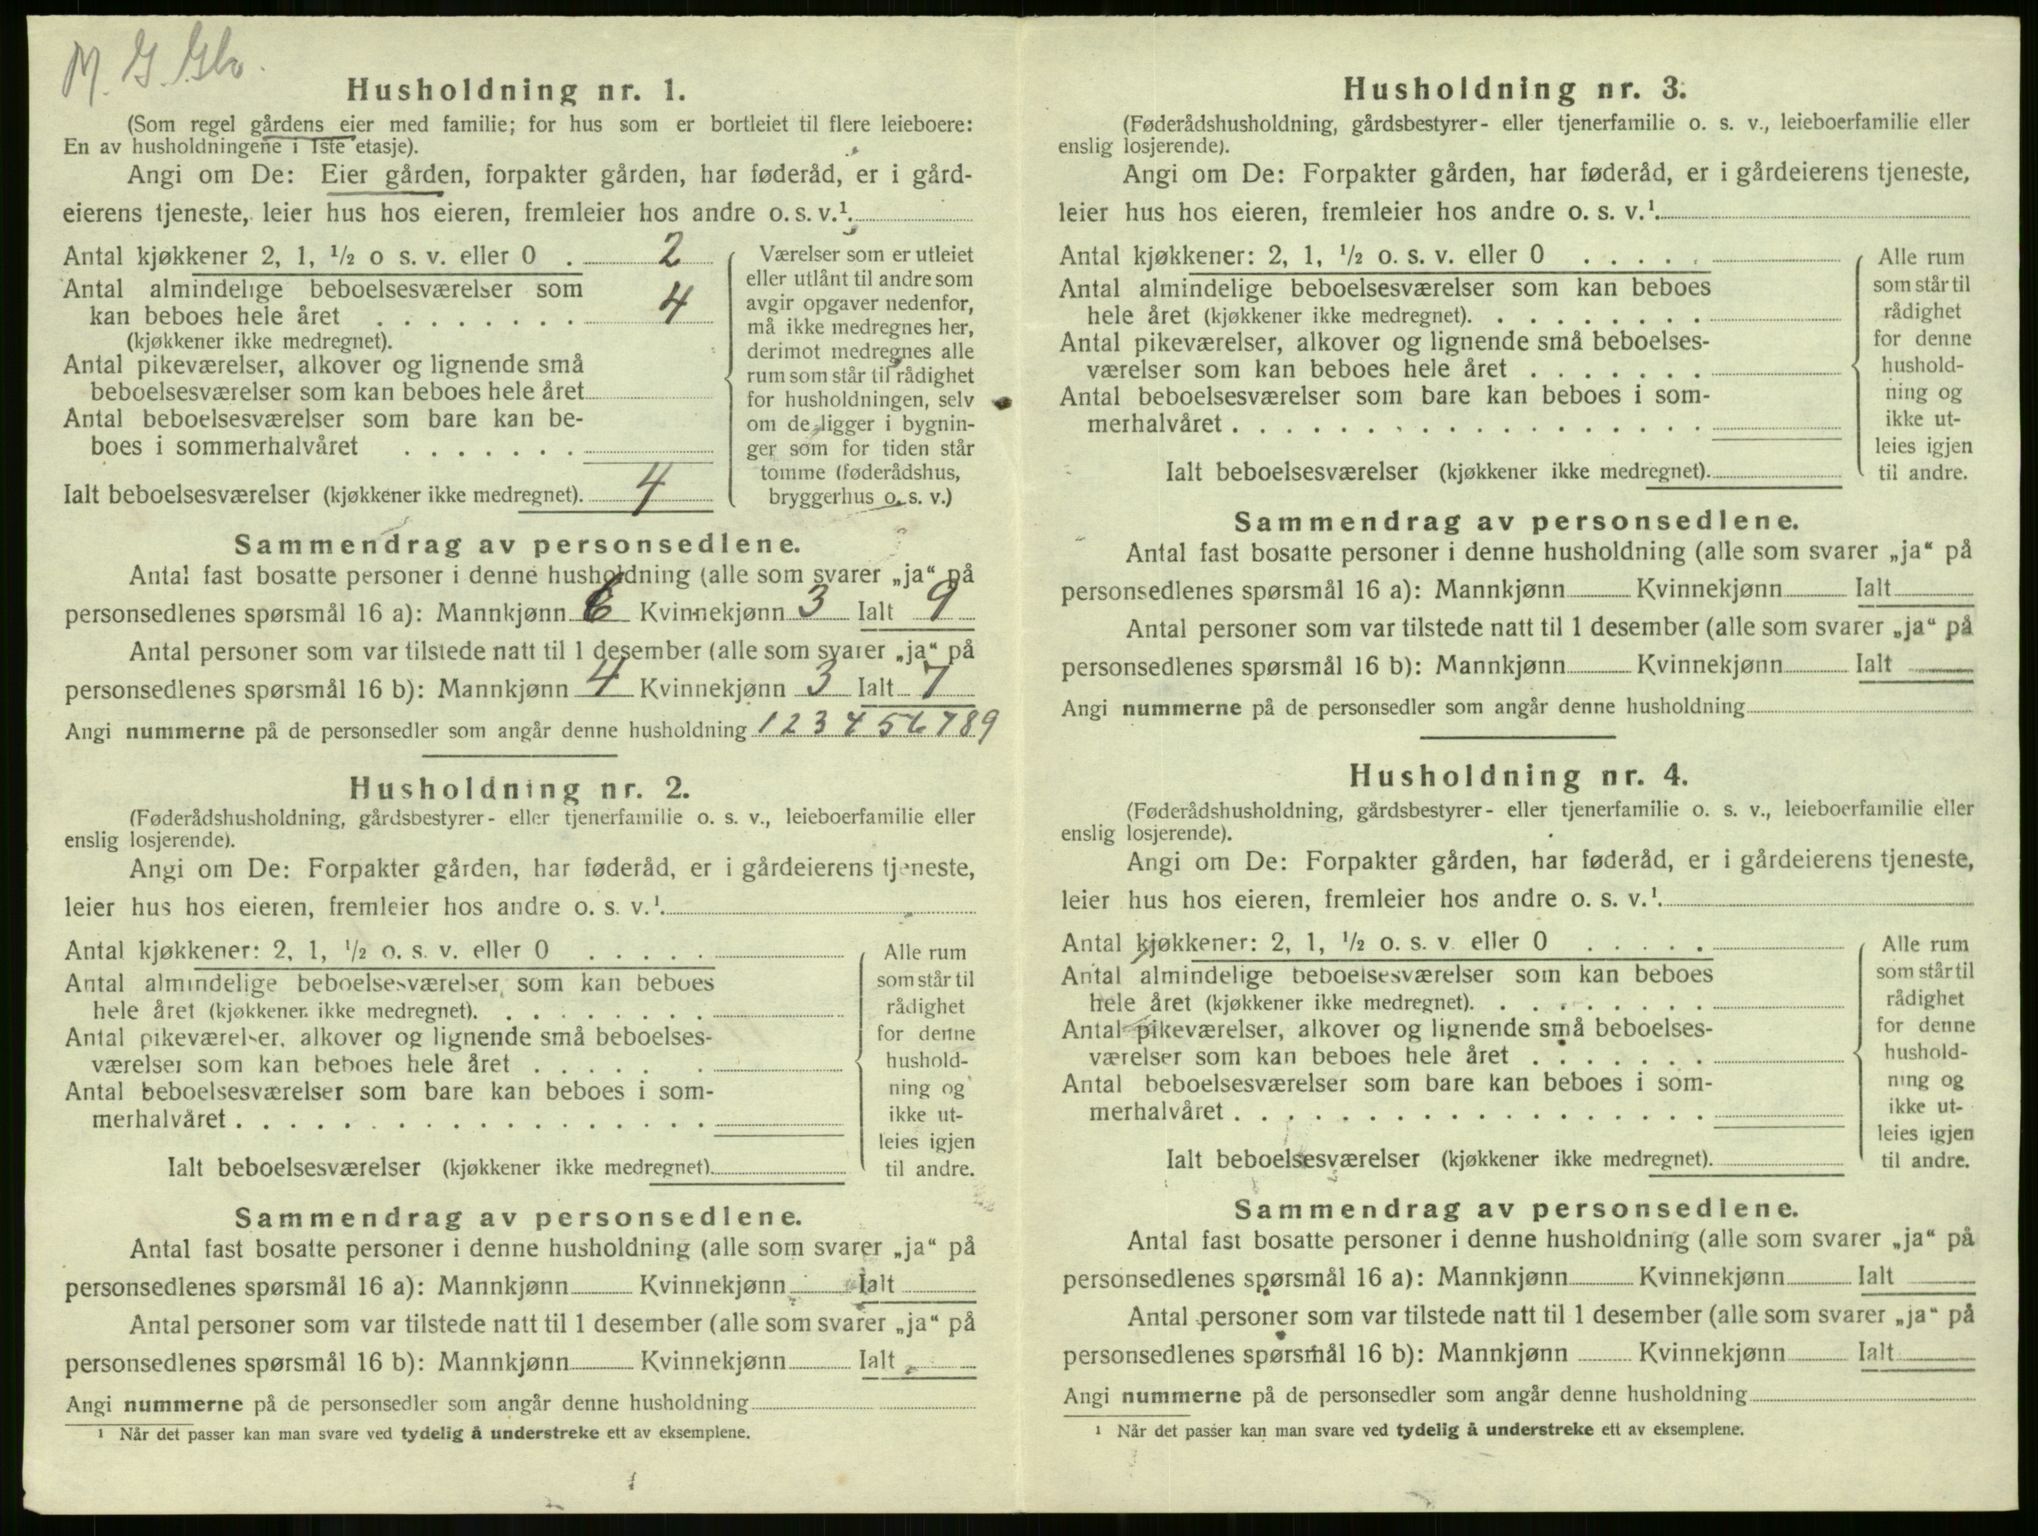 M. G.
Husholdning nr. 1.
(Som regel gårdens eier med familie; for hus som er bortleiet til flere leieboere:
En av husholdningene i 1ste etasje).
Angi om De: Eier gården, forpakter gården, har føderåd, er i gård-
eierens tjeneste, leier hus hos eieren, fremleier hos andre o. s. v.¹.
Antal kjøkkener 2, 1, ½ o s. v. eller 0 . 2
Antal almindelige beboelsesværelser som
kan beboes hele året . . . . . . . . 4
(kjøkkener ikke medregnet).
Antal pikeværelser, alkover og lignende små
beboelsesværelser som kan beboes hele året
Antal beboelsesværelser som bare kan be-
boes i sommerhalvåret . . . . . . .
Ialt beboelsesværelser (kjøkkener ikke medregnet). 4
Værelser som er utleiet
eller utlånt til andre som
avgir opgaver nedenfor,
må ikke medregnes her,
derimot medregnes alle
rum som står til rådighet
for husholdningen, selv
om de ligger i bygnin-
ger som for tiden står
tomme (føderådshus,
bryggerhus o. s. v.)
Sammendrag av personsedlene.
Antal fast bosatte personer i denne husholdning (alle som svarer „ja“ på
personsedlenes spørsmål 16 a): Mannkjønn 6 Kvinnekjønn 3 Ialt 9
Antal personer som var tilstede natt til 1 desember (alle som svarer „ja“ på
personsedlenes spørsmål 16 b): Mannkjønn 4 Kvinnekjønn 3 Ialt 7
Angi nummerne på de personsedler som angår denne husholdning 1 2 3 4 5 6 7 8 9
Husholdning nr. 2.
(Føderådshusholdning, gårdsbestyrer- eller tjenerfamilie o. s. v., leieboerfamilie eller
enslig losjerende).
Angi om De: Forpakter gården, har føderåd, er i gårdeierens tjeneste,
leier hus hos eieren, fremleier hos andre o. s. v.¹.
Antal kjøkkener: 2, 1, ½ o. s. v. eller 0 . . . . .
Antal almindelige beboelsesværelser som kan beboes
hele året (kjøkkener ikke medregnet). . . . . . . . .
Antal pikeværelser, alkover og lignende små beboelses-
værelser som kan beboes hele året . . . . . . .
Antal beboelsesværelser som bare kan beboes i som-
merhalvåret . . . . . . . . . . . . . . . . . .
Ialt beboelsesværelser (kjøkkener ikke medregnet).
Alle rum
som står til
rådighet
for denne
hushold-
ning og
ikke ut-
leies igjen
til andre.
Sammendrag av personsedlene.
Antal fast bosatte personer i denne husholdning (alle som svarer „ja“ på
personsedlenes spørsmål 16 a): Mannkjønn Kvinnekjønn Ialt
Antal personer som var tilstede natt til 1 desember (alle som svarer „ja“ på
personsedlenes spørsmål 16 b): Mannkjønn Kvinnekjønn Ialt
Angi nummerne på de personsedler som angår denne husholdning
¹ Når det passer kan man svare ved tydelig å understreke ett av eksemplene.
Husholdning nr. 3.
(Føderådshusholdning, gårdsbestyrer- eller tjenerfamilie o. s. v., leieboerfamilie eller
enslig losjerende).
Angi om De: Forpakter gården, har føderåd, er i gårdeierens tjeneste,
leier hus hos eieren, fremleier hos andre o. s. v.¹.
Antal kjøkkener: 2, 1, ½ o. s. v. eller 0 . . . . .
Antal almindelige beboelsesværelser som kan beboes
hele året (kjøkkener ikke medregnet). . . . . . . . .
Antal pikeværelser, alkover og lignende små beboelses-
værelser som kan beboes hele året . . . . . . .
Antal beboelsesværelser som bare kan beboes i som-
merhalvåret . . . . . . . . . . . . . . . . . .
Ialt beboelsesværelser (kjøkkener ikke medregnet).
Alle rum
som står til
rådighet
for denne
hushold-
ning og
ikke ut-
leies igjen
til andre.
Sammendrag av personsedlene.
Antal fast bosatte personer i denne husholdning (alle som svarer „ja“ på
personsedlenes spørsmål 16 a): Mannkjønn Kvinnekjønn Ialt
Antal personer som var tilstede natt til 1 desember (alle som svarer „ja“ på
personsedlenes spørsmål 16 b): Mannkjønn Kvinnekjønn Ialt
Angi nummerne på de personsedler som angår denne husholdning
Husholdning nr. 4.
(Føderådshusholdning, gårdsbestyrer- eller tjenerfamilie o. s. v., leieboerfamilie eller
enslig losjerende).
Angi om De: Forpakter gården, har føderåd, er i gårdeierens tjeneste,
leier hus hos eieren, fremleier hos andre o. s. v.¹.
Antal kjøkkener: 2, 1, ½ o. s. v. eller 0 . . . . .
Antal almindelige beboelsesværelser som kan beboes
hele året (kjøkkener ikke medregnet). . . . . . . . .
Antal pikeværelser, alkover og lignende små beboelses-
værelser som kan beboes hele året . . . . . . .
Antal beboelsesværelser som bare kan beboes i som-
merhalvåret . . . . . . . . . . . . . . . . . .
Ialt beboelsesværelser (kjøkkener ikke medregnet).
Alle rum
som står til
rådighet
for denne
hushold-
ning og
ikke ut-
leies igjen
til andre.
Sammendrag av personsedlene.
Antal fast bosatte personer i denne husholdning (alle som svarer „ja“ på
personsedlenes spørsmål 16 a): Mannkjønn Kvinnekjønn Ialt
Antal personer som var tilstede natt til 1 desember (alle som svarer „ja“ på
personsedlenes spørsmål 16 b): Mannkjønn Kvinnekjønn Ialt
Angi nummerne på de personsedler som angår denne husholdning
¹ Når det passer kan man svare ved tydelig å understreke ett av eksemplene.